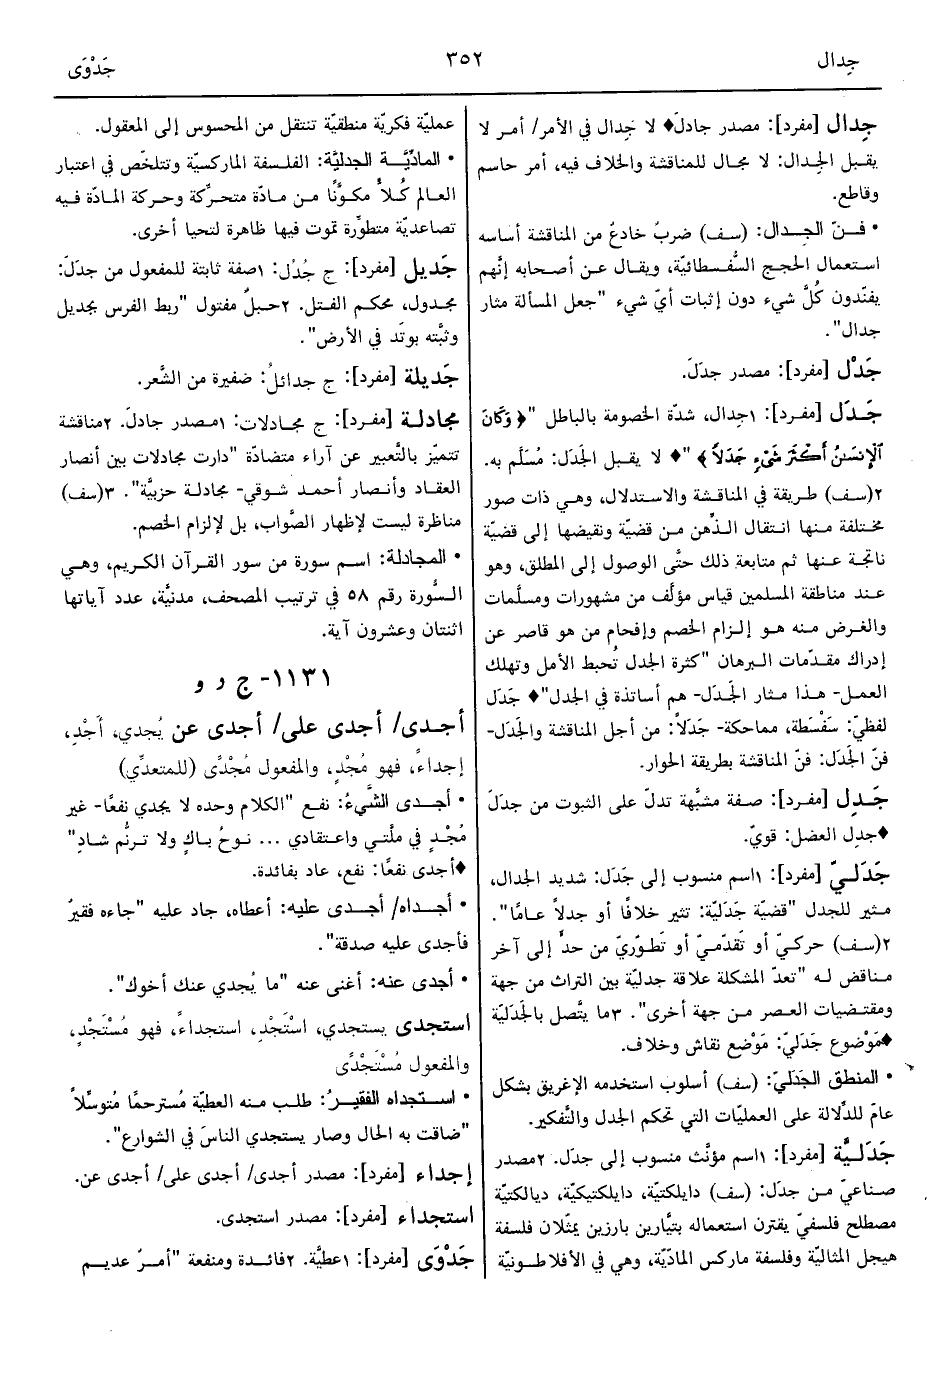 جِدال
٣٥٢
جَدْوَى
جِدال [مفرد]: مصدر جادلَ♦ لا جِدال في الأمر/ أمر لا
يقبل الجدال: لا مجال للمناقشة والخلاف فيه، أمر حاسم
وقاطع.
• فـنّ الجِدال: (سف) ضربٌ خادعٌ من المناقشة أساسه
استعمال الحجج السُّفسطائيّة، ويقال عن أصحابه إنَّهم
يفنّدون كُلَّ شيء دون إثبات أيّ شيء "جعل المسألة مثار
جدال".
جَدْل [مفرد]: مصدر جدَلَ.
جَـدَل [مفرد]: ١جدال، شدّة الخصومة بالباطل "﴿وَكَانَ
ٱلْإِنسَٰنُ أَكْثَرَ شَيْءٍ جَدَلًا﴾"♦ لا يقبـل الجدَل: مُسَلَّم به.
٢(سف) طريقة في المناقشة والاستدلال، وهـي ذات صور
مختلفة مـنها انتقال الـذِّهن مـن قضيّة ونقيضها إلى قضيّة
ناتجة عـنها ثم متابعة ذلك حتَّى الوصول إلى المطلق، وهو
عـند مناطقة المسلمين قياس مؤلَّف من مشهورات ومسلَّمات
والغـرض منه هـو إلـزام الخصم وإفحام من هو قاصر عن
إدراك مقـدّمات الـبرهان "كثرة الجدل تُحبط الأمل وتهلك
العمـل- هـذا مثار الجَـدَل- هـم أساتذة في الجدل"♦ جَدَل
لفظيّ: سَفْسَطة، مماحكة- جَدَلاً: من أجل المناقشة والجَدَل-
فنّ الجَدَل: فنّ المناقشة بطريقة الحوار.
جَـدِل [مفرد]: صـفة مشبَّهة تدلّ على الثبوت من جدَلَ
♦جدِل العضل: قويّ.
جَدَلـيّ [مفرد]: ١اسم منسوب إلى جَدَل: شديد الجدال،
مثير للجدل "قضيّة جَدَليّة: تثير خلافًا أو جدلاً عـامًّا".
٢(سـف) حركيّ أو تَقدّميّ أو تَطوّريّ من حدٍّ إلى آخر
مـناقض لـه "تعدّ المشكلة علاقة جدليّة بين التراث من جهة
ومقتضيات العصر مـن جهة أخرى". ٣ما يتَّصل بالجَدَليّة
♦مَوْضوع جَدَليّ: مَوْضِع نقاش وخلاف.
• المنطق الجَدَليّ: (سف) أسلوب استخدمه الإغريق بشكل
عامّ للدِّلالة على العمليّات التي تحكم الجدل والتَّفكير.
جَدَلـيَّة [مفرد]: ١اسم مؤنَّث منسوب إلى جدَل. ٢مصدر
صناعيّ مـن جدَل: (سف) دايلكتيّة، دايلكتيكيّة، ديالكتيّة
مصطلح فلسفيّ يقترن استعماله بتيَّارين بارزين يمثّلان فلسفة
هيجل المثاليّة وفلسفة ماركس المادّيّة، وهي في الأفلاطـونيّة
عمليّة فكريّة منطقيّة تنتقل من المحسوس إلى المعقول.
• المادِّيَّـة الجدليَّة: الفلسفة الماركسيّة وتتلخّص في اعتبار
العالم كُـلاًّ مكوَّنًا مـن مـادّة متحرِّكة وحركة المادّة فـيه
تصاعديّة متطوِّرة تموت فيها ظاهرة لتحيا أخرى.
جَديل [مفرد]: ج جُدُل: ١صفة ثابتة للمفعول من جدَلَ:
مجدول، محكم الفـتل. ٢حبـلٌ مفتول "ربط الفرس بجديل
وثبَّته بوتَد في الأرض".
جَديلة [مفرد]: ج جدائلُ: ضفيرة من الشَّعر.
مجادلـة [مفـرد]: ج مجـادلات: ١مـصدر جادلَ. ٢مناقشة
تتميّز بالتَّعبير عن آراء متضادّة "دارت مجادلات بين أنصار
العقاد وأنـصار أحمـد شـوقي- مجادلـة حزبيَّة". ٣(سف)
مناظرة ليست لإظهار الصَّواب، بل لإلزام الخصم.
• المجادلَة: اسـم سورة مـن سور القرآن الكـريم، وهـي
السُّورة رقم ٥٨ في ترتيب المصحف، مدنيَّة، عدد آياتها
اثنتان وعشرون آية.
١١٣١- ج د و
أجـدى/ أجدى على/ أجدى عن يُجدي، أَجْدِ،
إجداءً، فهو مُجْدٍ، والمفعول مُجْدًى (للمتعدِّي)
• أجـدى الشَّيءُ: نفـع "الكلام وحده لا يجدي نفعًا- غير
مُجْـدٍ في ملّتي واعتقادي ... نـوحُ بـاكٍ ولا ترنُّم شـادِ"
♦أجدى نفعًا: نفع، عاد بفائدة.
• أجـداه/ أجـدى عليه: أعطاه، جاد عليه "جاءه فقيرٌ
فأجدى عليه صدقة".
• أجدى عنه: أغنى عنه "ما يُجدي عنك أخوك".
استجدى يستجدي، اسْتَجْدِ، استجداءً، فهو مُسْتَجْدٍ،
والمفعول مُسْتَجْدًى
• اسـتجداه الفقيـرُ: طلب منه العطيّة مُسترحمًا مُتوسِّلاً
"ضاقت به الحال وصار يستجدي الناسَ في الشوارع".
إجداء [مفرد]: مصدر أجدى/ أجدى على/ أجدى عن.
استجداء [مفرد]: مصدر استجدى.
جَدْوَى [مفرد]: ١عطيَّة. ٢فائـدة ومنفعة "أمـرٌ عديـم